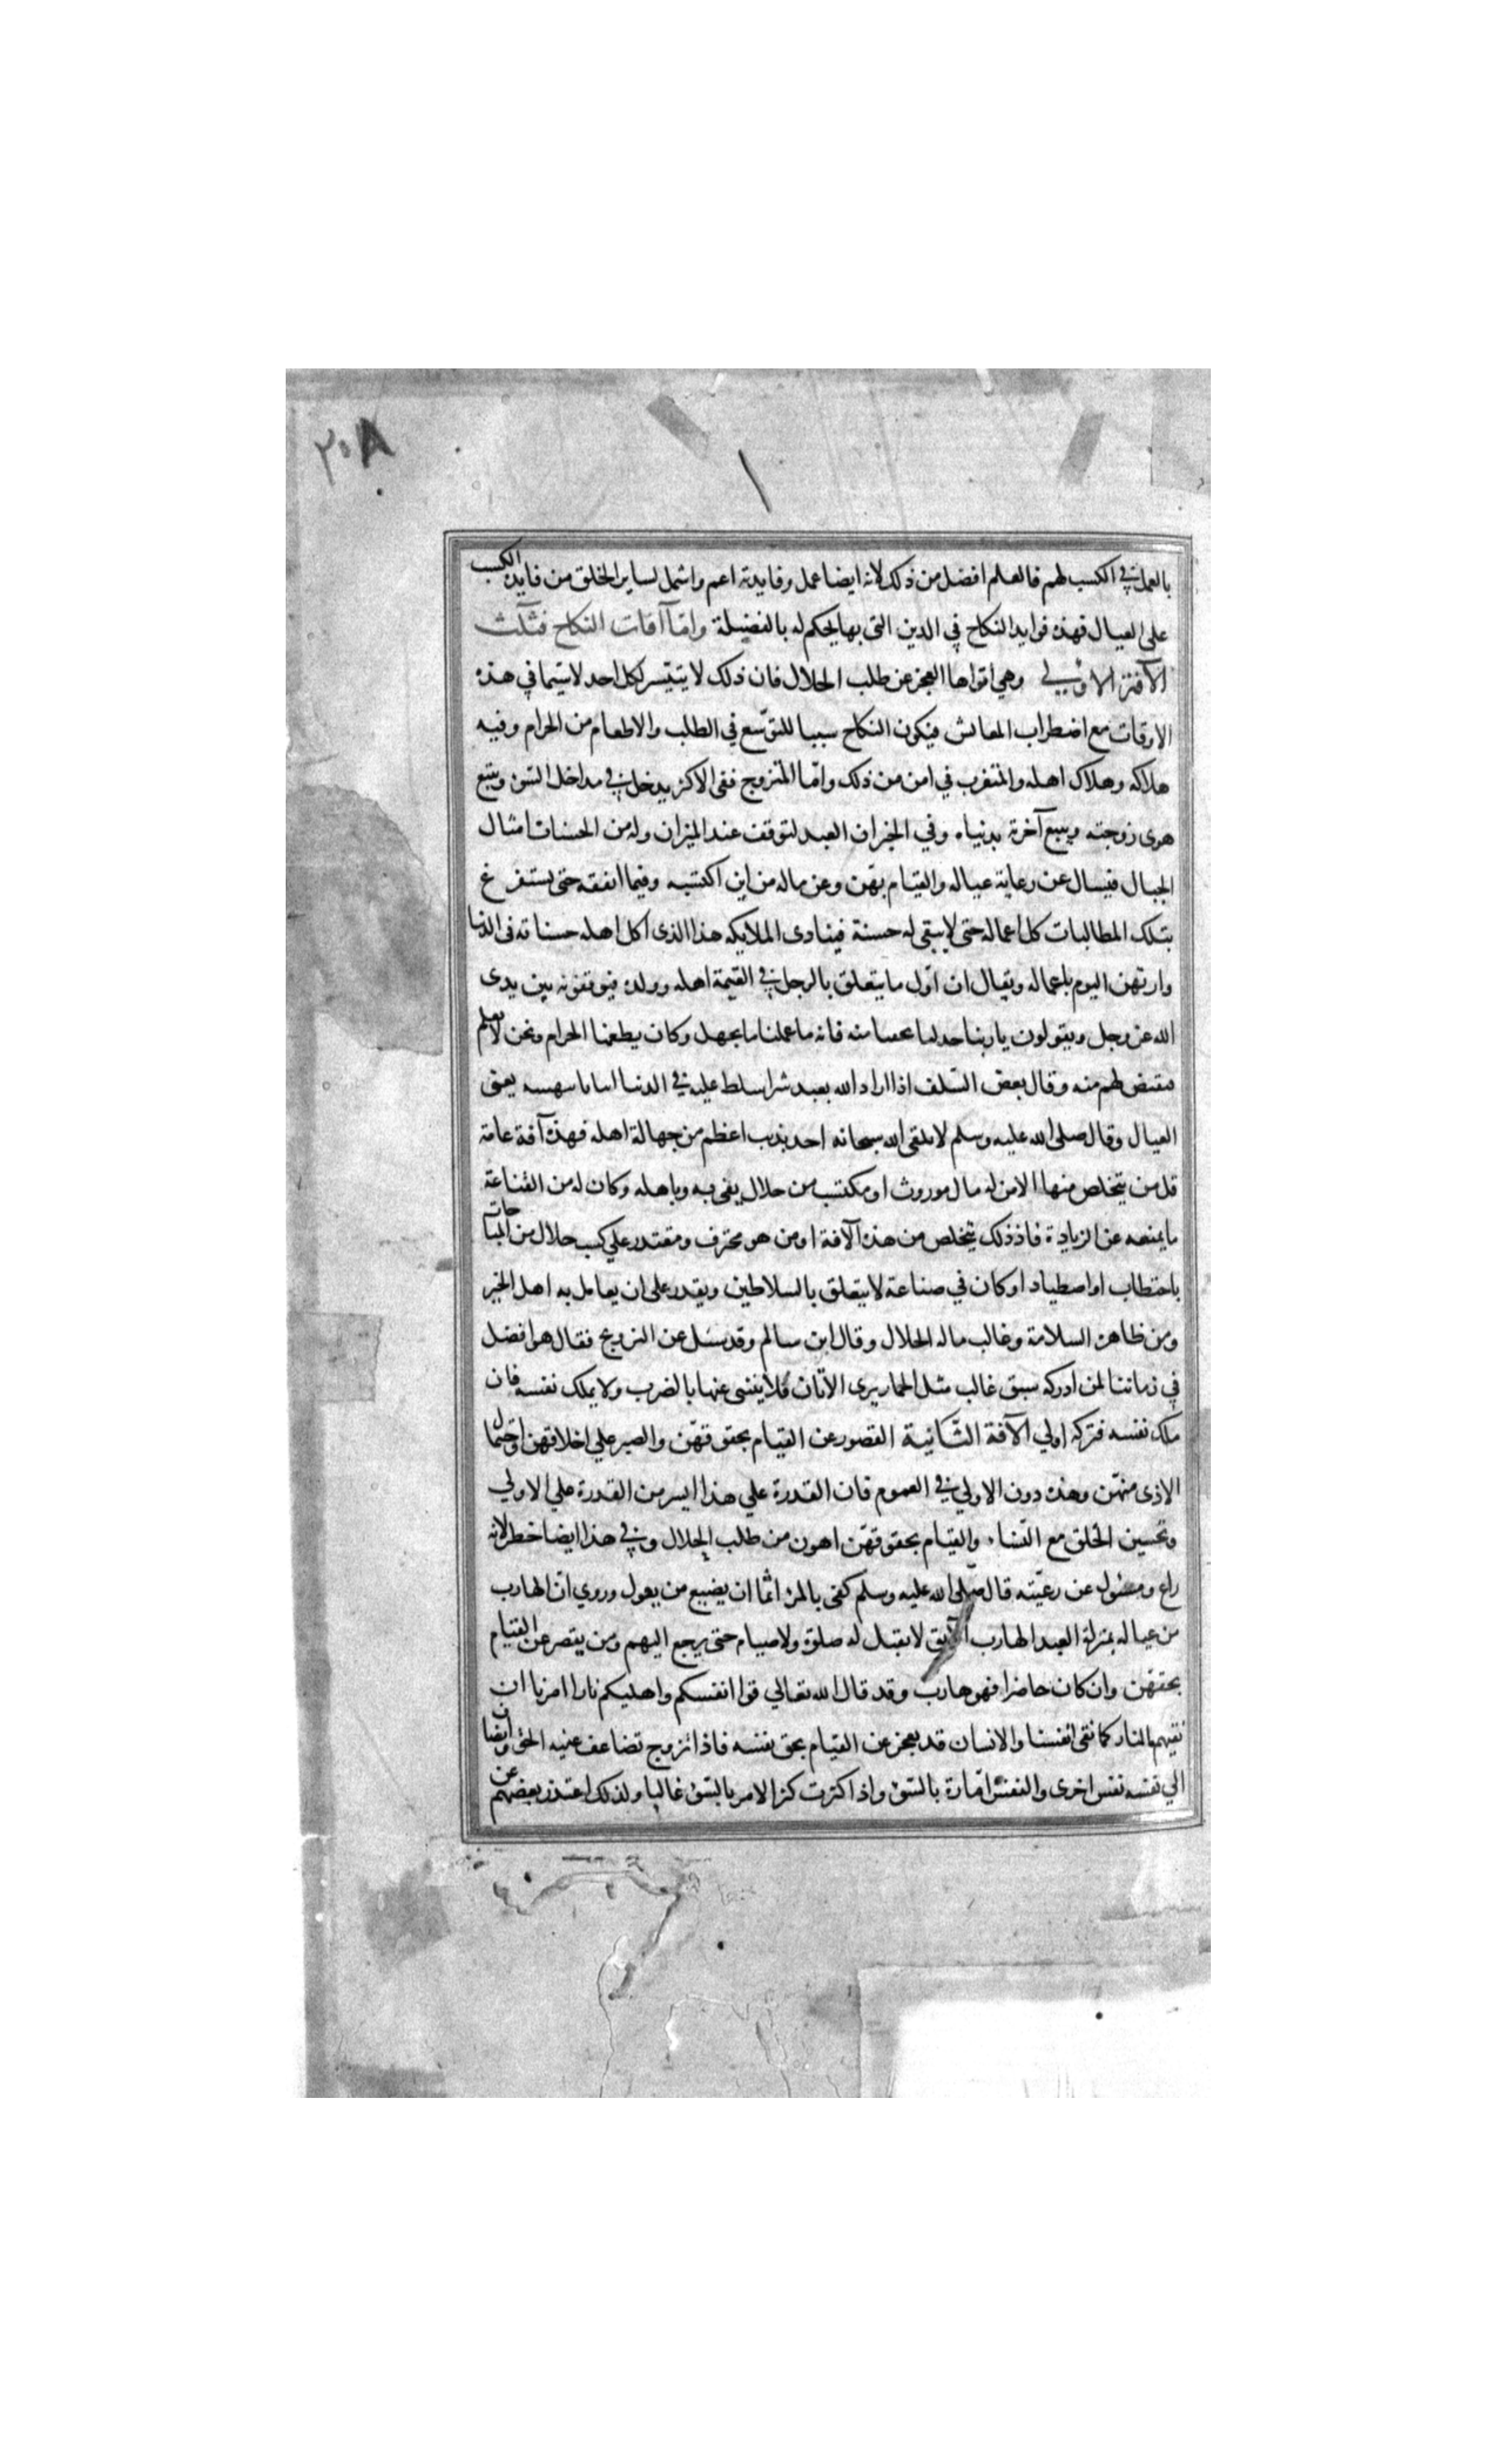 ٣٠٨
١
بالعمل في الكسب لهم فالعلم افضل من ذلك لانه ايضا عمل وفايدته اعم واشمل لساير الخلق من فايدة الكسب
على العيال فهذه فوايد النكاح في الدين التى بها يحكم له بالفضيلة واما آفات النكاح فثلث
الآفة الاولي وهي اقواها العجز عن طلب الحلال فان ذلك لا يتيسر لكل احد لا سيما في هذه
الاوقات مع اضطراب المعايش فيكون النكاح سببا للتوسع في الطلب والاطعام من الحرام وفيه
هلاكه وهلاك اهله والمتعزب في امن من ذلك واما المتزوج ففى الاكثر يدخل في مداخل السوء ويتبع
هوى زوجته ويبيع آخرته بدنياه وفي الخبر ان العبد لتوقف عند الميزان وله من الحسنات امثال
الجبال فيسال عن رعاية عياله والقيام بهن وعن ماله من اين اكتسبه وفيما انفقه حتى يستفرغ
بتلك المطالبات كل اعماله حتى لا يبقى له حسنة فينادى الملايكه هذا الذى اكل اهله حسناته فى الدنيا
وارتهن اليوم باعماله ويقال ان اول ما يتعلق بالرجل في القيمة اهله وولده فيوقفونه بين يدى
الله عز وجل ويقولون يا ربنا خذ لنا بحقنا منه فانه ما علمنا ما نجهل وكان يطعمنا الحرام ونحن لا نعلم
فيقتص لهم منه وقال بعض السلف اذا اراد الله بعبد شرا سلط عليه في الدنيا انيابا تنهشه يعنى
العيال وقال صلى الله عليه وسلم لا يلقى الله سبحانه احد بذنب اعظم من جهالة اهله فهذه آفة عامة
قل من يتخلص منها الا من له مال موروث او مكتسب من حلال يفى به وباهله وكان له من القناعة
ما يمنعه عن الزيادة فاذ ذلك يتخلص من هذه الآفة او من هو محترف ومقتدر علي كسب حلال من المباحات
باحتطاب او اصطياد او كان في صناعة لا يتعلق بالسلاطين ويقدر على ان يعامل به اهل الخير
ومن ظاهره السلامة وغالب ماله الحلال وقال ابن سالم وقد سئل عن التزويج فقال هو افضل
في زماننا لمن ادركه سبق غالب مثل الحمار يرى الاتان فلا ينتهى عنها بالضرب ولا يملك نفسه فان
ملك نفسه فتركه اولي الآفة الثانية القصور عن القيام بحقوقهن والصبر علي اخلاقهن واحتمال
الاذى منهن وهذه دون الاولي في العموم فان القدرة علي هذا ايسر من القدرة علي الاولي
وتحسين الخلق مع النساء والقيام بحقوقهن اهون من طلب الحلال وفي هذا ايضا خطر لانه
راع ومسئول عن رعيته قال صلى الله عليه وسلم كفى بالمرء اثما ان يضيع من يعول وروي ان الهارب
من عياله بمنزلة العبد الهارب الآبق لا يقبل له صلوة ولا صيام حتى يرجع اليهم ومن يقصر عن القيام
بحقهن وان كان حاضرا فهو هارب وقد قال الله تعالي قوا انفسكم واهليكم نارا امرنا ان
نقيهم النار كما نقى انفسنا والانسان قد يعجز عن القيام بحق نفسه فاذا تزوج تضاعف عليه الحق وانضاف
الي نفسه نفس اخرى والنفس امارة بالسوء واذا كثرت كثر الامر بالسوء غالبا ولذلك اعتذر بعضهم عن